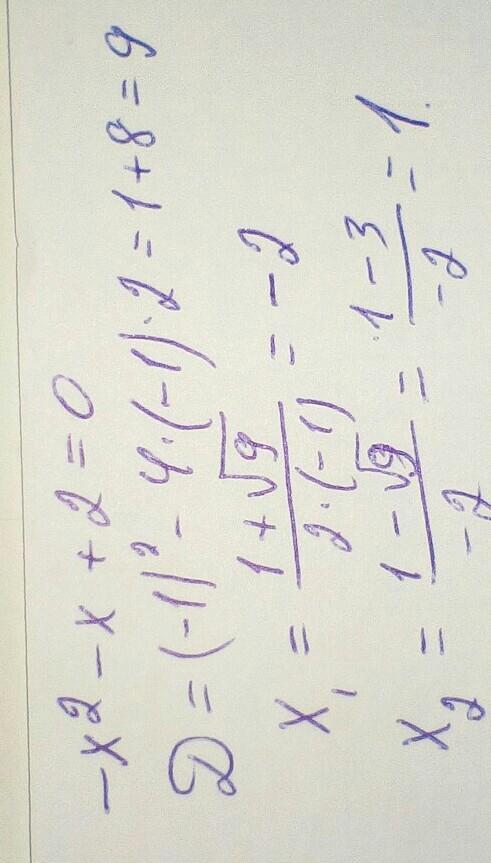 -x² - x + 2 = 0
D = (-1)² - 4·(-1)·2 = 1 + 8 = 9
x₁ = (1 + √9)/(2·(-1)) = -2
x₂ = (1 - √9)/(-2) = (1 - 3)/(-2) = 1.